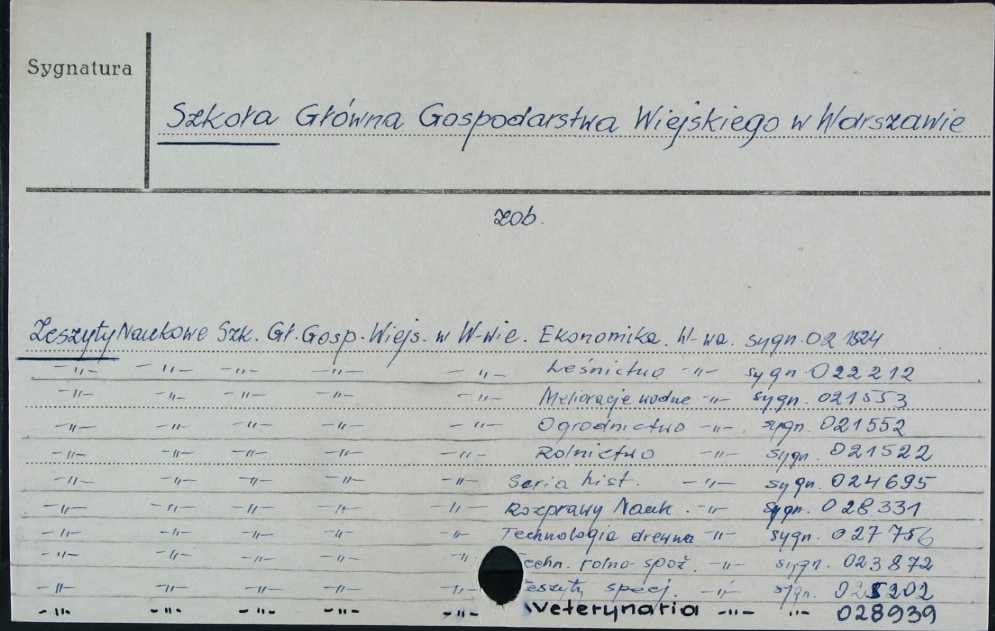 Sygnatura
Szkoła Główna Gospodarstwa Wiejskiego w Warszawie
zob.
Zeszyty Naukowe Szk. Gł. Gosp. Wiejs. w W-wie. Ekonomika. W-wa. sygn. 021524
-"- -"- -"- -"- -"- Leśnictwo -"- sygn 022212
-"- -"- -"- -"- -"- Melioracje wodne -"- sygn. 021553
-"- -"- -"- -"- -"- Ogrodnictwo -"- sygn. 021552
-"- -"- -"- -"- -"- Rolnictwo -"- sygn. 021522
-"- -"- -"- -"- -"- Seria hist. -"- sygn. 024695
-"- -"- -"- -"- -"- Rozprawy Nauk. -"- sygn. 028331
-"- -"- -"- -"- -"- Technologia drewna -"- sygn. 027756
-"- -"- -"- -"- -"- echn. rolno-spoż. -"- sygn. 023872
-"- -"- -"- -"- -"- eszyty specj. -"- sygn. 025202
-"- -"- -"- -"- -"- Weterynaria -"- -"- 028939